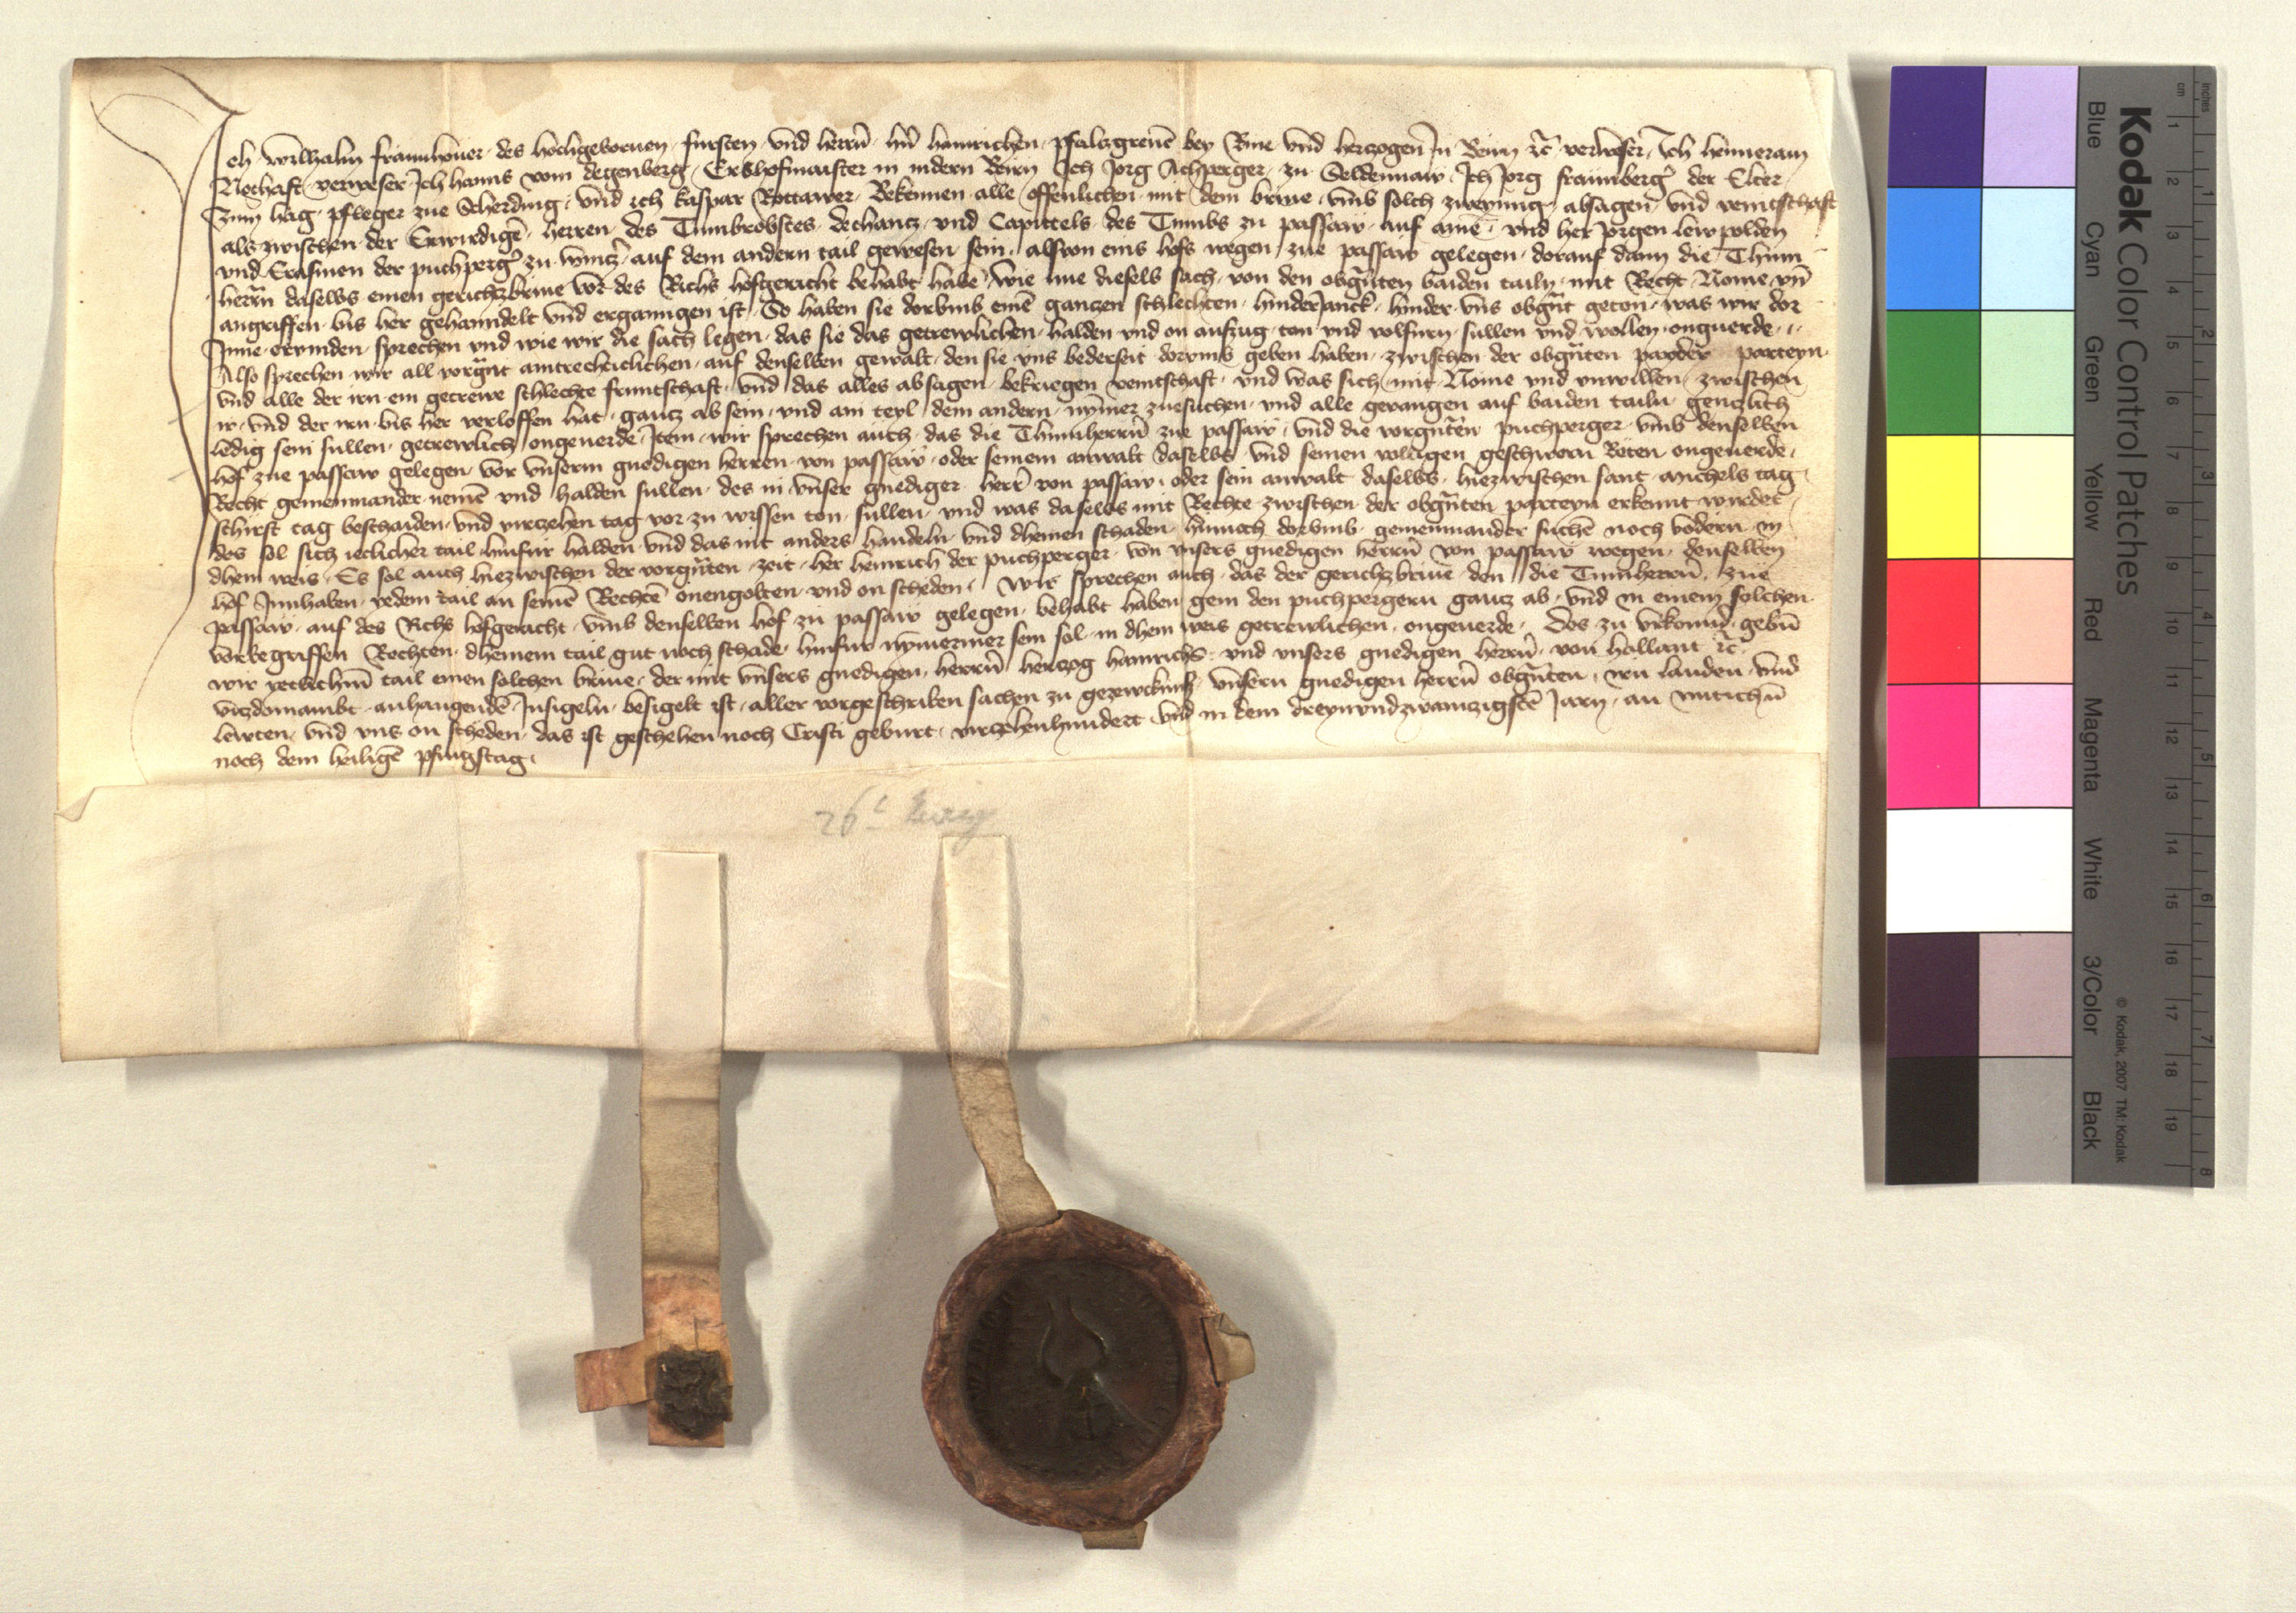 Ich Wilhalm fraunhouer des hochgebornen fursten vnd herrn hern hainrichen pfalczgreuē bey Rine vnd herczogen in Beirn ꝛc̄ verweser Ich heimeram
Nothaft verweser Ich hanns vom degenberg Erbhofmaister in nidern Beirn Ich Jorg Achperger zu Seldennaw Ich Jorg fraunberg̉ der Elter
zum hag pfleger zue Scherding vnd ich kaspar Rottawer Bekennen alle offenlichen mit dem brieue vmb solch zweyung absagen vnd veintschaft
als zwischen der Erwirdigē herren des Tumbrobstes dechantz vnd Capittels des Tumbs zu passaw auf ainē vnd her Jorgen lewpolden
vnd Erasmen der puchperg̉ zu wintz̉ auf dem andern tail gewesen sein alsuon eins hofs wegen zue passaw gelegen dorauf dann die Thum
herrn daselbs einen gerichtzbriue vor des Richs hofgericht behabt habē wie nue dieselb sach von den obgn̄ten baiden tailn mit Recht Nome vn̄
angriffen bis her gehanndelt vnd ergangen ist So haben sie dorvmb einē ganczen schlechten hinderganck hinder vns obgn̄t geton was wir dor
Inne erfinden sprechen vnd wie wir die sach legen das sie das getrewlichen halden vnd on aufzug ton vnd volfurn sullen vnd wollen ongeuerde
Also sprechen wir all vorgn̄t aintrechticlichen auf denselben gewalt den sie vns bederseit dorvmb geben haben zwischen der obgn̄ten parteyn
vnd alle der irn ein getrewe schlechte fruntschaft vnd das alles absagen bekriegen veintschaft vnd was sich mit Nome vnd vnwillen zwischen
ir vnd der irn bis her verloffen hat gantz ab sein vnd ain teyl dem andern nymer zuesuchen vnd alle geuangen auf baiden tailn genczlich
ledig sein sullen getrewlich ongeuerde Item wir sprechen auch das die Thumherrn zue passaw vnd die vorgn̄ten puchperger vmb denselben
hof zue passaw gelegen vor vnserm gnedigen herren von passaw oder seinem anwalt daselbs vnd seinen völligen geschworn Reten ongeuerde
Recht geneinnander nemē vnd halden sullen des in vnser gnediger herr von passaw oder sein anwalt daselbs hiezwischen sant Michels tag
schirst tag beschaiden vnd virczehen tag vor zu wissen ton sullen vnd was daselbs mit Rechte zwischen der obgn̄ten parteyn erkennt wirdet
des sol sich ieclicher tail hinfur halden vnd das nit anders handeln vnd dheinen schaden hinnoch dorvmb geneinnander suchē noch vodern in
dhein weis Es sol auch hiezwischen der vorgn̄ten zeit her heinrich der puchperger von vnsers gnedigen herrn von passaw wegen denselben
hof Innhaben yedem tail an seinē Rechtē onengolten vnd on scheden Wir sprechen auch das der gerichtzbriue den die Tumherrn zue
passaw auf des Richs hofgericht vmb denselben hof zu passaw gelegen behabt haben gein den puchpergern gantz ab vnd in einem solchen
vorbegriffen Rechten dheinem tail gut noch schade hinfur nymermer sein sol in dhein weis getrewlichen ongeuerde Des zu vrkonnd gebn̄
wir yetlichm̄ tail einen solchen briue der mit vnsers gnedigen herrn herczog hainrichs vnd vnsers gnedigen herrn von hollant ꝛc̄
viczdomambt anhangendē Insigeln besigelt ist aller vorgeschriben sachen zu gezewcknuß vnsern gnedigen herrn obgn̄ten irn landen vnd
lewten vnd vns on scheden das ist geschehen noch Cristi geburt virczehenhundert vnd in dem dreyvndzwainczigstē Jarn an mitichn̄
noch dem heiligē pfingstag
26t
Kodak Color Control Patches
Blue Cyan Green Yellow Red Magenta White 3/Color Black
© Kodak, 2007 TM: Kodak
cm 1 2 3 4 5 6 7 8 9 10 11 12 13 14 15 16 17 18 19
inches 1 2 3 4 5 6 7 8